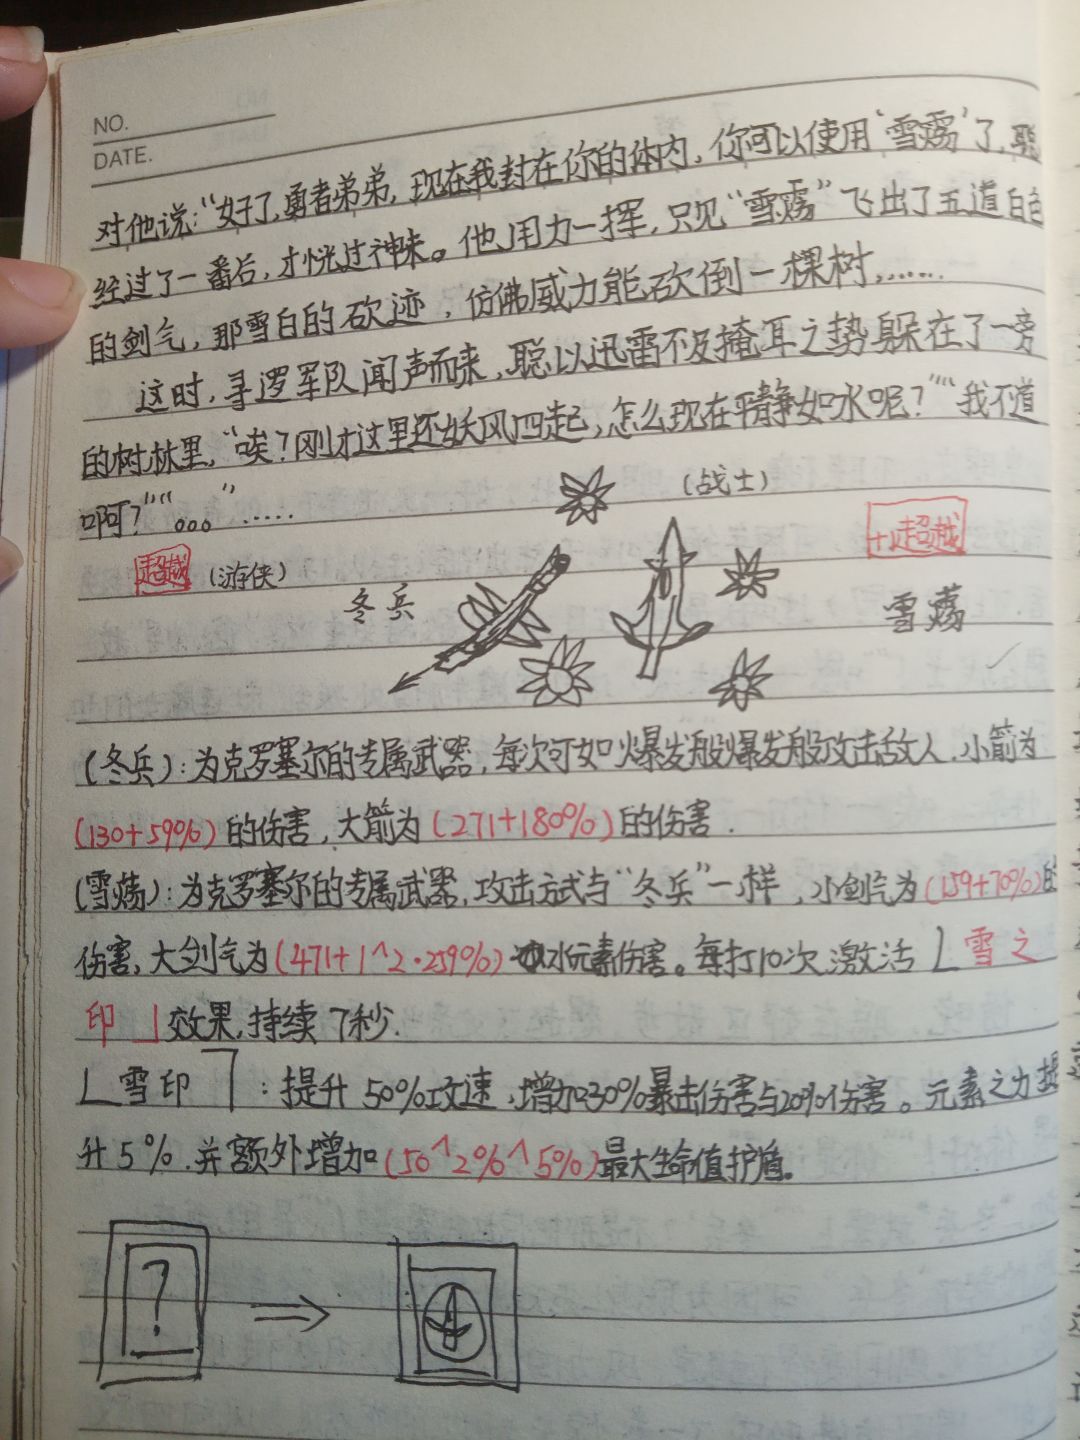 NO.
DATE.
对他说：“好了，勇者弟弟，现在我封在你的体内，你可以使用‘雪荡’了，聪
经过了一番后，才恍过神来。他用力一挥，只见“雪荡”飞出了五道白色
的剑气，那雪白的砍迹，仿佛威力能砍倒一棵树，……
这时，寻逻军队闻声而来，聪以迅雷不及掩耳之势躲在了一旁
的树林里，“唉？刚才这里还妖风四起，怎么现在平静如水呢？”“我不道
啊？”“。。。”……
（战士）
超越（游侠）
+1超越
冬兵
雪荡
（冬兵）：为克罗塞尔的专属武器，每次可如火爆发般爆发般攻击敌人，小箭为
（130+59%）的伤害，大箭为（271+180%）的伤害.
（雪荡）：为克罗塞尔的专属武器，攻击方式与“冬兵”一样，小剑气为（159+70%）的
伤害，大剑气为（471+1^2·259%）冰元素伤害。每打10次激活「雪之
印」效果，持续7秒.
L雪印7：提升50%攻速，增加30%暴击伤害与20%伤害。元素之力提
升5%.并额外增加（50^2%^5%）最大生命值护盾。
?